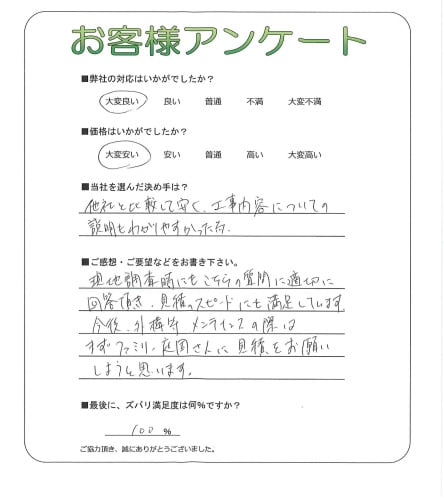 お客様アンケート
■弊社の対応はいかがでしたか？
大変良い 良い 普通 不満 大変不満
■価格はいかがでしたか？
大変安い 安い 普通 高い 大変高い
■当社を選んだ決め手は？
他社と比較して安く、工事内容についての
説明もわかりやすかった為。
■ご感想・ご要望などをお書き下さい。
現地調査時にもこちらの質問に適切に
回答頂き、見積のスピードにも満足しています
今後、外構等 メンテナンスの際は
まずファミリー庭園さんに見積をお願い
しようと思います。
■最後に、ズバリ満足度は何%ですか？
100 %
ご協力頂き、誠にありがとうございました。